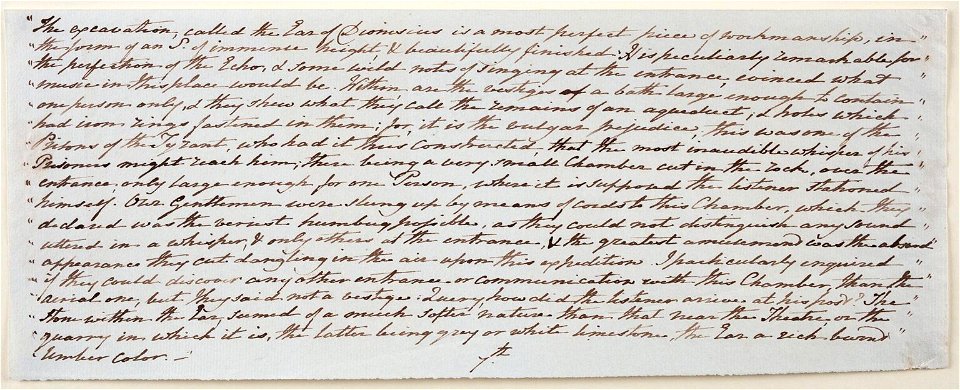 " The excavation, called the Ear of Dionusius is a most perfect piece of workmanship, in "
" the form of an S. of immense height & beautifully finished: It is peculiarly remarkable for "
" the perfection of the Echo, & some wild notes of singing at the entrance, evinced what "
" music in this place would be. Within are the vestiges of a bath large enough to contain "
" one person only, & they shew what they call the remains of an aqueduct, & holes which "
" had iron rings fastened in them; for, it is the vulgar prejudice, this was one of the "
" Prisons of the Tyrant, who had it thus constructed, that the most inaudible whisper of his "
" Prisoners might reach him; there being a very small Chamber cut in the rock, over the "
" entrance, only large enough for one Person, where it is supposed the listener stationed "
" himself. Our Gentlemen were slung up by means of cords to this Chamber, which they "
" declared was the veriest humbug possible, as they could not distinguish any sound "
" uttered in a whisper, & only others at the entrance, & the greatest amusement was the absurd "
" appearance they cut dangling in the air upon this expedition. I particularly enquired "
" if they could discover any other entrance or communication with this Chamber, than the "
" aerial one, but they said not a vestige: Query, how did the listener arrive at his post? The "
" Stone within the Ear, seemed of a much softer nature than that near the Theatre, or the "
" quarry in which it is, the latter being grey or white limestone, the Ear a rich burnd "
" Umber color. —
7th